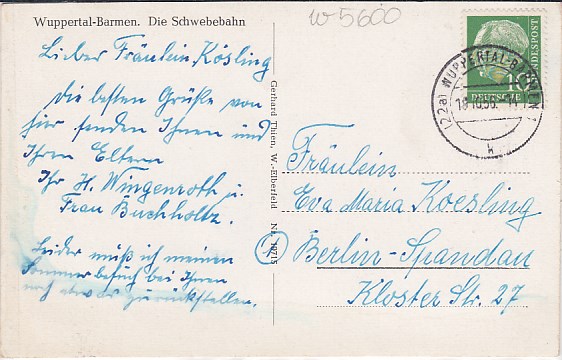 Wuppertal-Barmen. Die Schwebebahn
w 5600
Lieber Fräulein Kösling
Die besten Grüße von
hier senden Ihnen und
Ihren Eltern
Ihr H. Wingenroth u.
Frau Buchholtz.
Leider muß ich meinen
Sommerbesuch bei Ihnen
noch etwas zurückstellen.
Gerhard Thien, W.-Elberfeld Nr. 10715
10
DEUTSCHE
BUNDESPOST
(22a) WUPPERTAL-BARMEN
h
Fräulein
Eva Maria Koesling
Berlin-Spandau
Kloster Str. 27